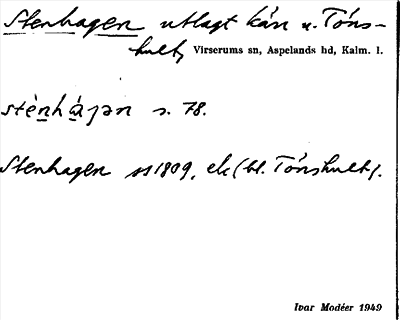 Stenhagen utlagt kärr u. Töns-
hult, Virserums sn, Aspelands hd, Kalm. l.
stènhàgan s. 78.
Stenhagen 1809, ek (bl. Tönshult).
Ivar Modéer 1949